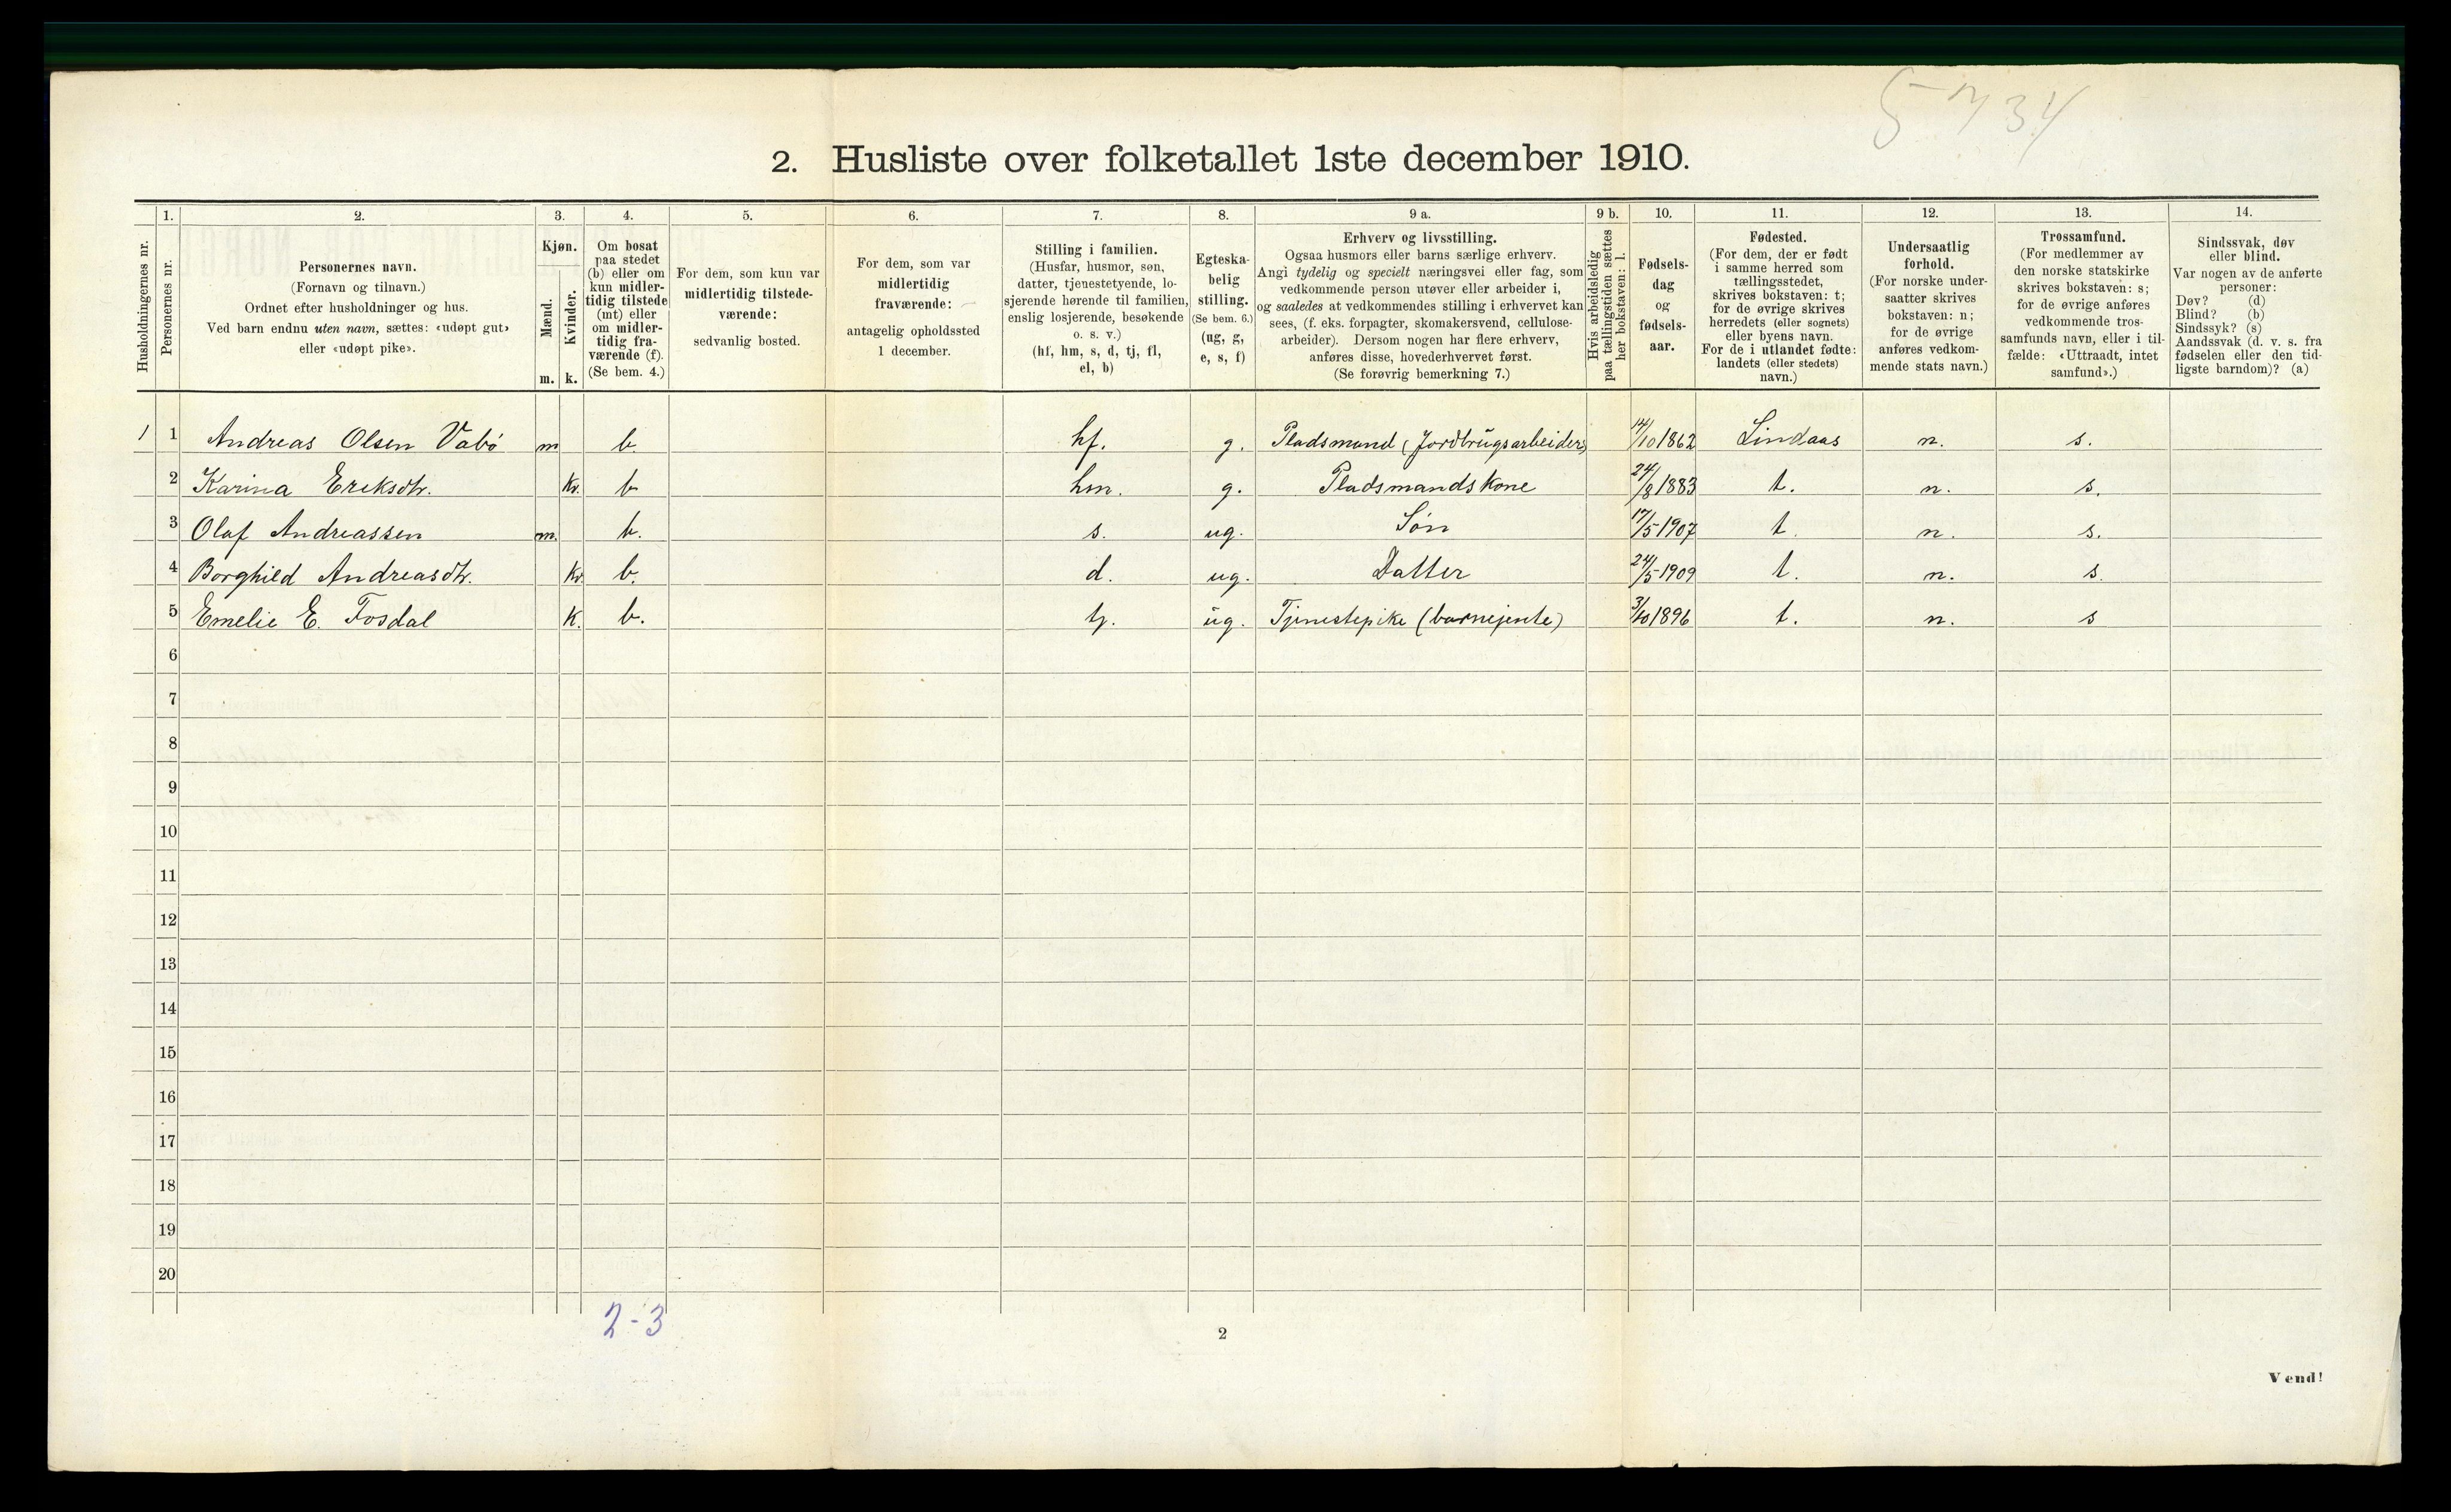 5734
2. Husliste over folketallet 1ste december 1910.
Husholdningernes nr.
1.
Personernes nr.
2.
Personernes navn.
(Fornavn og tilnavn.)
Ordnet efter husholdninger og hus.
Ved barn endnu uten navn, sættes: «udøpt gut»
eller «udøpt pike».
3.
Kjøn.
Mænd.
Kvinder.
m. k.
4.
Om bosat
paa stedet
(b) eller om
kun midler-
tidig tilstede
(mt) eller
om midler-
tidig fra-
værende (f).
(Se bem. 4.)
5.
For dem, som kun var
midlertidig tilstede-
værende:
sedvanlig bosted.
6.
For dem, som var
midlertidig
fraværende:
antagelig opholdssted
1 december.
7.
Stilling i familien.
(Husfar, husmor, søn,
datter, tjenestetyende, lo-
sjerende hørende til familien,
enslig losjerende, besøkende
o. s. v.)
(hf, hm, s, d, tj, fl,
el, b)
8.
Egteska-
belig
stilling.
(Se bem. 6.)
(ug, g,
e, s, f)
9 a.
Erhverv og livsstilling.
Ogsaa husmors eller barns særlige erhverv.
Angi tydelig og specielt næringsvei eller fag, som
vedkommende person utøver eller arbeider i,
og saaledes at vedkommendes stilling i erhvervet kan
sees, (f. eks. forpagter, skomakersvend, cellulose-
arbeider). Dersom nogen har flere erhverv,
anføres disse, hovederhvervet først.
(Se forøvrig bemerkning 7.)
9 b.
Hvis arbeidsledig
paa tællingstiden sættes
her bokstaven: l.
10.
Fødsels-
dag
og
fødsels-
aar.
11.
Fødested.
(For dem, der er født
i samme herred som
tællingsstedet,
skrives bokstaven: t;
for de øvrige skrives
herredets (eller sognets)
eller byens navn.
For de i utlandet fødte:
landets (eller stedets)
navn.)
12.
Undersaatlig
forhold.
(For norske under-
saatter skrives
bokstaven: n;
for de øvrige
anføres vedkom-
mende stats navn.)
13.
Trossamfund.
(For medlemmer av
den norske statskirke
skrives bokstaven: s;
for de øvrige anføres
vedkommende tros-
samfunds navn, eller i til-
fælde: «Uttraadt, intet
samfund».)
14.
Sindssvak, døv
eller blind.
Var nogen av de anførte
personer:
Døv? (d)
Blind? (b)
Sindssyk? (s)
Aandssvak (d. v. s. fra
fødselen eller den tid-
ligste barndom)? (a)
1 1 Andreas Olsen Vabø m b. hf. g. Pladsmand (Jordbrugsarbeider) 14/10 1862 Lindaas n. s.
2 Karina Eriksdtr. kv. b hm. g. Pladsmandskone 24/8 1883 t. n. s.
3 Olaf Andreassen m. b. s. ug. Søn 17/5 1907 t. n. s.
4 Borghild Andreasdtr. kv. b. d. ug. Datter 24/5 1909 t. n. s.
5 Emelie E. Fosdal k. b. tj. ug. Tjenestepike (barnejente) 3/10 1896 t. n. s
6
7
8
9
10
11
12
13
14
15
16
17
18
19
20
2-3
2
Vend!